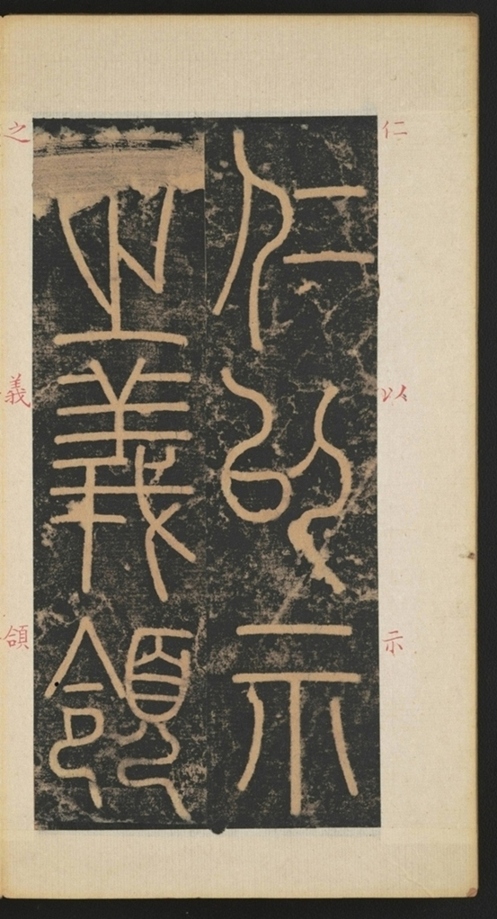 仁
以
示
仁以示
之義領
之
義